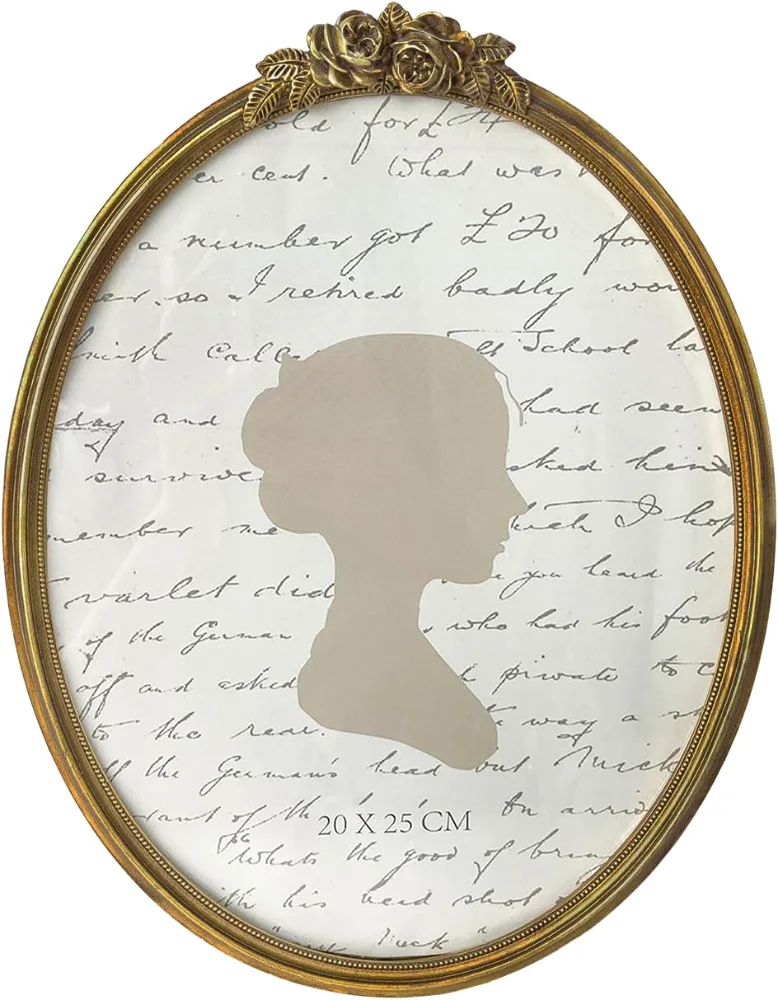 old for £
er cent. What was
a number got £20 for
er. so I retired badly wou
Smith Calle School la
day and had seen
survive sked him
member me which I hop
varlet did you heard the
of the German who had his foot
off and asked private to c
to the rear. way a st
off the German's head but Mick
vant of th On arriv
20 X 25 CM
Whats the good of bring
th his head shot